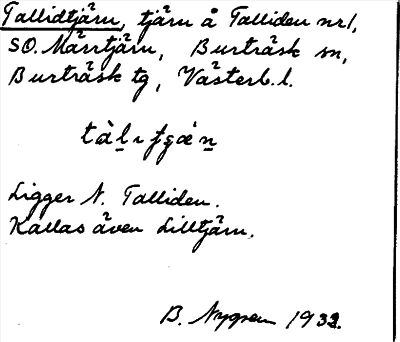 Tallidtjärn, tjärn å Talliden nr 1,
SO. Märrtjärn, Burträsk sn,
Burträsk tg, Västerb. l.
Ligger N. Talliden.
Kallas även Lilltjärn.
B. Nygren 1932.